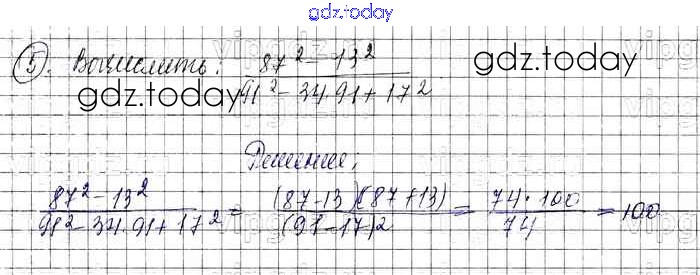 gdz.today
5). Вычислить: (87² - 13²)/(91² - 34·91 + 17²)
gdz.today
gdz.today
Решение:
(87² - 13²)/(91² - 34·91 + 17²) = ((87-13)(87+13))/(91-17)² = (74·100)/74 = 100